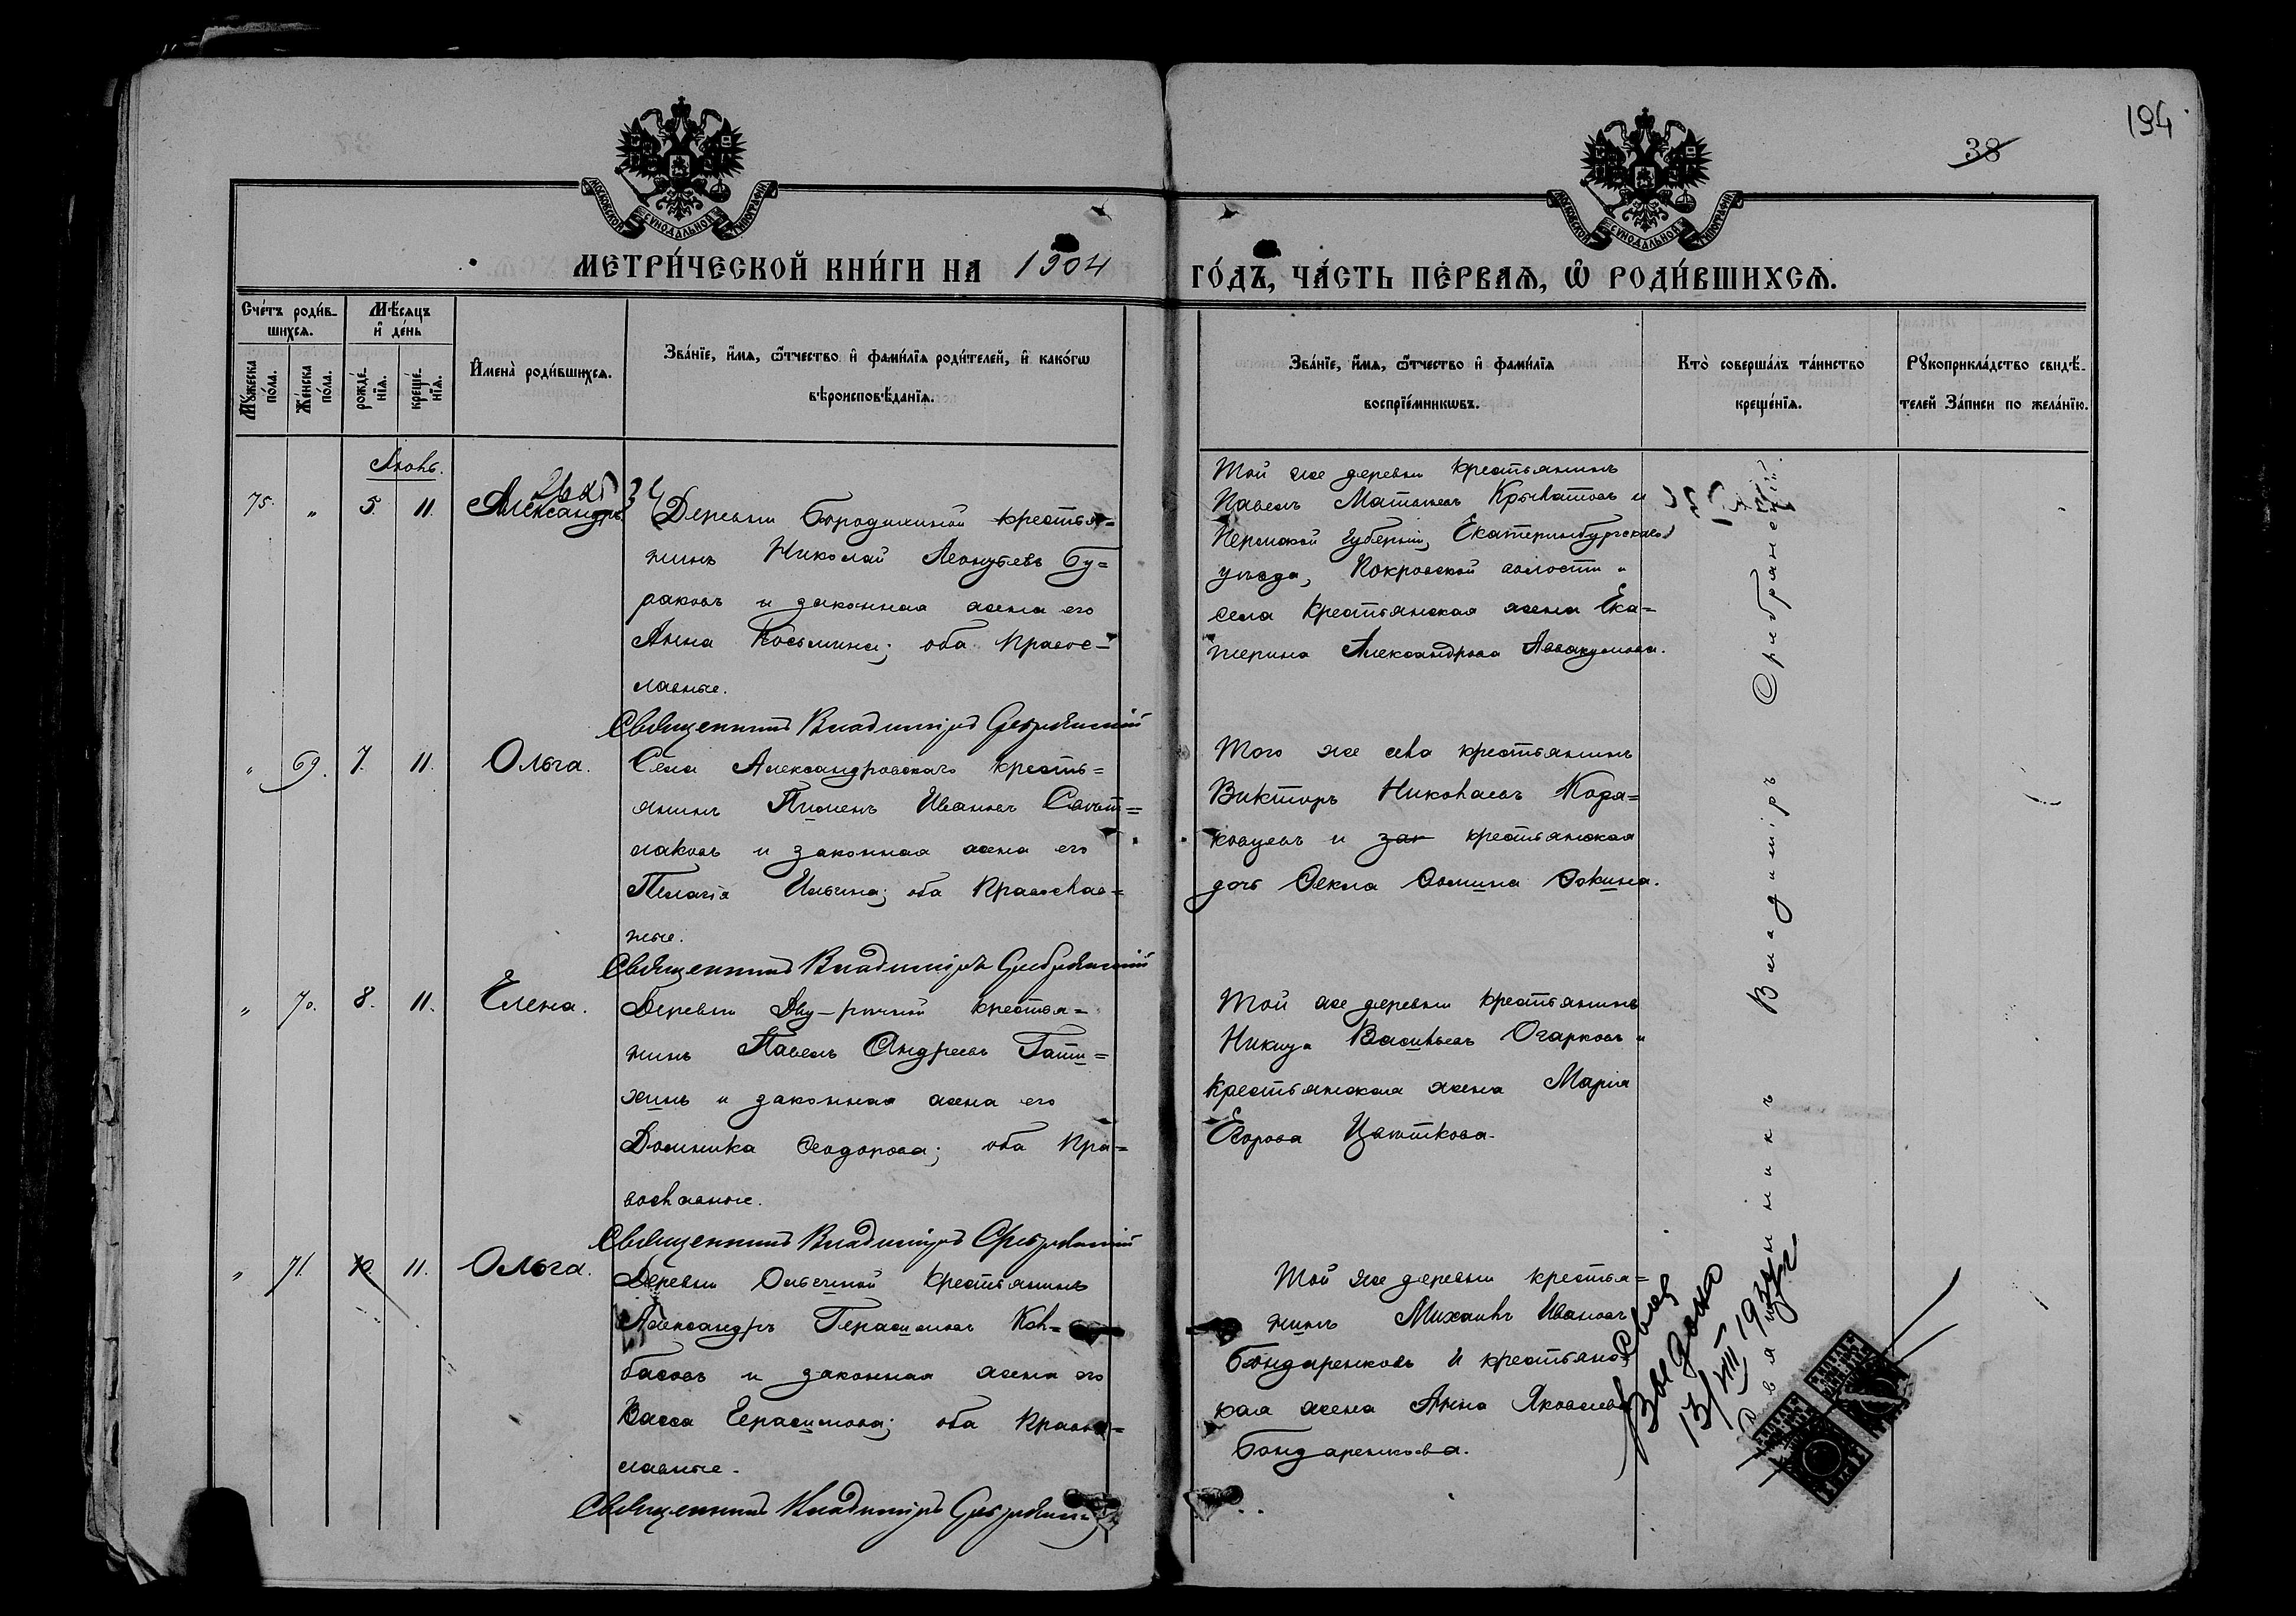 194
38
МОСКОВСКОЙ СѴНОДАЛЬНОЙ ТИПОГРАФІИ
МОСКОВСКОЙ СѴНОДАЛЬНОЙ ТИПОГРАФІИ
МЕТРИ́ЧЕСКОЙ КНИ́ГИ НА 1904
ГО́ДЪ, ЧА́СТЬ ПЕ́РВАѦ, Ѡ҆ РОДИ́ВШИХСѦ.
Сче́тъ роди́в-
шихсѧ.
Мѣ́сѧцъ
и҆ де́нь
Мꙋ́жеска
по́ла.
Же́нска
по́ла.
рожде́-
нїѧ.
креще́-
нїѧ.
И҆мена̀ роди́вшихсѧ.
Зва́нїе, и҆́мѧ, ѻ҆́тчество и҆ фами́лїѧ роди́телей, и҆ како́гѡ
вѣроисповѣ́данїѧ.
Зва́нїе, и҆́мѧ, ѻ҆́тчество и҆ фами́лїѧ
воспрїе́мникѡвъ.
Кто̀ соверша́лъ та́инство
креще́нїѧ.
Рꙋкоприкла́дство свидѣ́-
телей За́писи по жела́нїю.
Іюнь.
75. " 5. 11. Александръ
Деревни Бородихиной крестья=
нинъ Николай Леонтьевъ Бу=
раковъ и законная жена его
Анна Косьмина; оба правос-
лавные.
Священникъ Владиміръ Сребрянскій
Той же деревни крестьянинъ
Павелъ Матвѣевъ и
Пермской губерніи, Екатеринбургскаго
уѣзда, Покровской волости и
села крестьянская жена Ека=
терина Александрова Аввакумова.
" 69. 7. 11. Ольга.
Села Александровскаго кресть=
янинъ Пименъ Ивановъ
и законная жена его
Пелагія Ильина; оба православ=
ные.
Священникъ Владиміръ Сребрянскій
Того же села крестьянинъ
Викторъ Николаевъ Каза=
ковцевъ и зак крестьянская
дочь Ѳекла Ѳомина
" 70. 8. 11. Елена.
Деревни Дву-рѣчной крестья=
нинъ Павелъ Андреевъ Гати=
хинъ и законная жена его
Домника Ѳеодорова; оба пра=
вославные.
Священникъ Владиміръ Сребрянскій
Той же деревни крестьянинъ
Никита Васильевъ Огарковъ и
крестьянская жена Марія
Егорова Цвѣткова.
" 71. 10. 11. Ольга.
Деревни крестьянинъ
Александръ Герасимовъ Кол=
басовъ и законная жена его
Васса Герасимова; оба право=
славные.
Священникъ Владиміръ Сребрянскій
Той же деревни крестья=
нинъ Михаилъ Ивановъ
Бондаренковъ и крестьянс=
кая жена Анна Яковлева
Бондаренкова.
Священникъ Владиміръ Сребрянскій.
Выдано
13/VIII 1937 г.